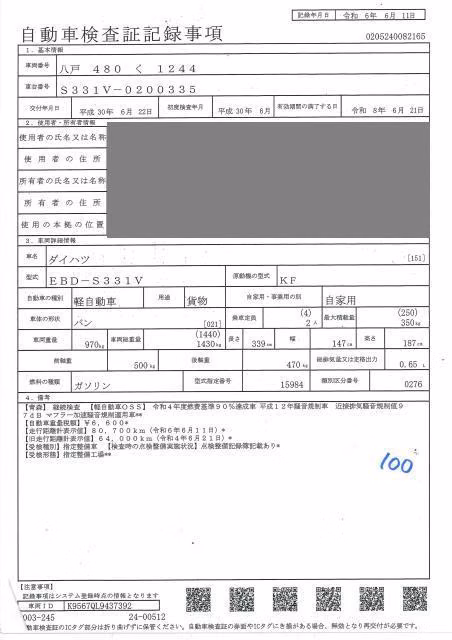 記録年月日 令和 6年 6月 11日
自動車検査証記録事項
0205240082165
1．基本情報
車両番号 八戸 480 く 1244
車台番号 S331V-0200335
交付年月日 平成 30年 6月 22日 初度検査年月 平成 30年 6月 有効期間の満了する日 令和 8年 6月 21日
2．使用者・所有者情報
使用者の氏名又は名称
使用者の住所
所有者の氏名又は名称
所有者の住所
使用の本拠の位置
3．車両詳細情報
車名 ダイハツ [151]
型式 EBD-S331V 原動機の型式 KF
自動車の種別 軽自動車 用途 貨物 自家用・事業用の別 自家用
車体の形状 バン [021] 乗車定員 (4) 2人 最大積載量 (250) 350kg
車両重量 970kg 車両総重量 (1440) 1430kg 長さ 339cm 幅 147cm 高さ 187cm
前軸重 500kg 後軸重 470kg 総排気量又は定格出力 0.65 L
燃料の種類 ガソリン 型式指定番号 15984 類別区分番号 0276
4．備考
【青森】 継続検査 【軽自動車OSS】 令和4年度燃費基準90％達成車 平成12年騒音規制車 近接排気騒音規制値9
7dB マフラー加速騒音規制適用車**
【自動車重量税額】¥6,600*
【走行距離計表示値】80,700km（令和6年6月11日）*
【旧走行距離計表示値】64,000km（令和4年6月21日）*
【受検種別】指定整備車 【検査時の点検整備実施状況】点検整備記録簿記載あり*
【受検形態】指定整備工場**
100
【注意事項】
記載事項はシステム登録時点の情報となります
車両ID K9567QL9437392
003-245 24-00512
自動車検査証のICタグ部分は折り曲げずに保管ください。自動車検査証の券面やICタグにき損がある場合、無効となり再交付が必要です。